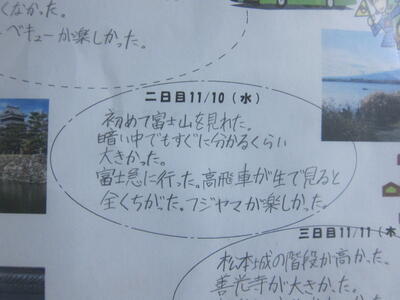 くなかった。
ベキューが楽しかった。
二日目11/10（水）
初めて富士山を見れた。
暗い中でもすぐに分かるくらい
大きかった。
富士急に行った。高飛車が生で見ると
全くちがった。フジヤマが楽しかった。
三日目11/11（木
松本城の階段が高かった。
善光寺が大きかった。